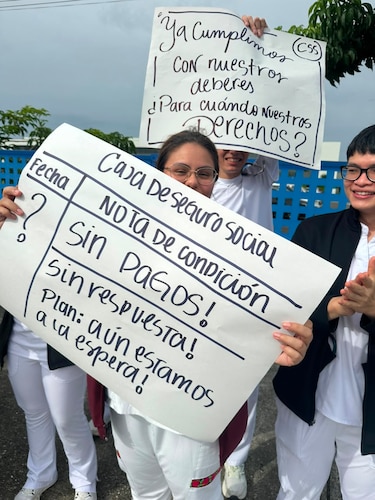 ¡Ya Cumplimos
CSS
con nuestros
deberes
¿Para cuándo nuestros
Derechos?
Caja de seguro social
Fecha
NOTA DE CONDICIÓN
?
Sin PAGOS!
Sin respuesta!
Plan: aún estamos
a la espera!